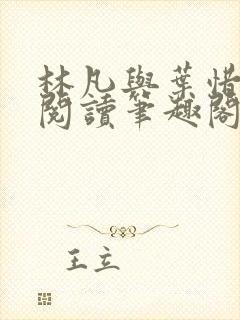 林凡與葉惜
閱讀筆趣閣
王立